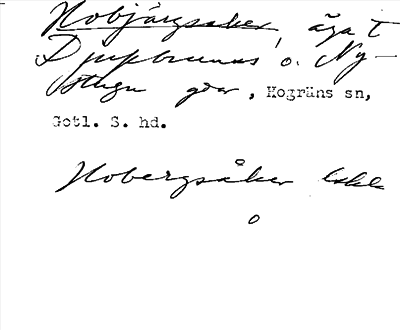 Hobjärgsaker, äga t
Djupbrunns o. Ny-
stugu gdar, Hogräns sn,
Gotl. S. hd.
Hobergsåker